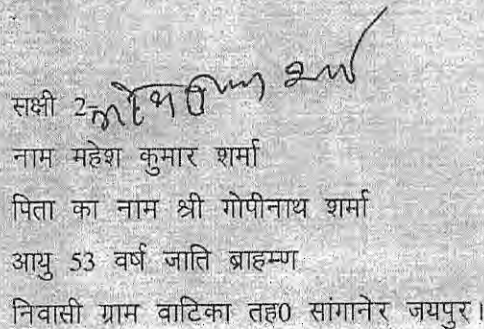 सक्षी 2- महेश कुमार शर्मा
नाम महेश कुमार शर्मा
पिता का नाम श्री गोपीनाथ शर्मा
आयु 53 वर्ष जाति ब्राहम्ण
निवासी ग्राम वाटिका तह0 सांगानेर जयपुर।